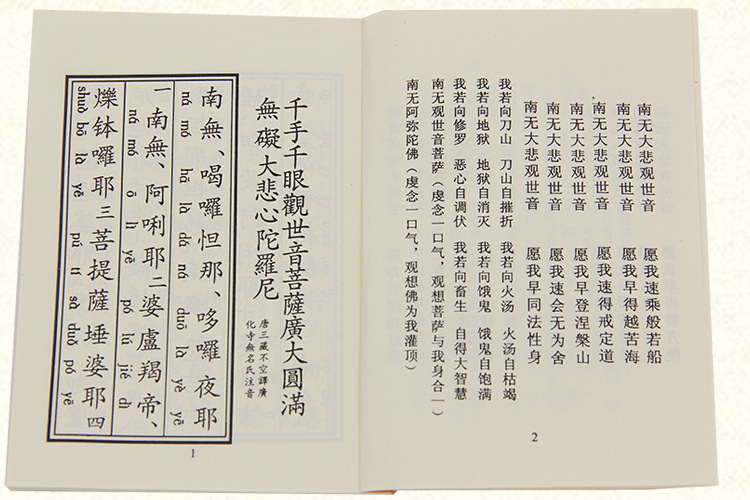 南无大悲观世音 愿我速乘般若船
南无大悲观世音 愿我早得越苦海
南无大悲观世音 愿我速得戒定道
南无大悲观世音 愿我早登涅槃山
南无大悲观世音 愿我速会无为舍
南无大悲观世音 愿我早同法性身
我若向刀山 刀山自摧折 我若向火汤 火汤自枯竭
我若向地狱 地狱自消灭 我若向饿鬼 饿鬼自饱满
我若向修罗 恶心自调伏 我若向畜生 自得大智慧
南无观世音菩萨(虔念一口气,观想菩萨与我身合一)
南无阿弥陀佛(虔念一口气,观想佛为我灌顶)
2
千手千眼觀世音菩薩廣大圓滿
無礙大悲心陀羅尼
唐三藏不空譯廣
化寺無名氏注音
南無、喝囉怛那、哆囉夜耶
ná mó hā là dá ná duō là yè yē
一南無、阿唎耶二婆盧羯帝、
ná mó ō lì yē pó lú jié dì
爍鉢囉耶三菩提薩埵婆耶四
shuò bō là yē pú tí sà duǒ pó yē
1